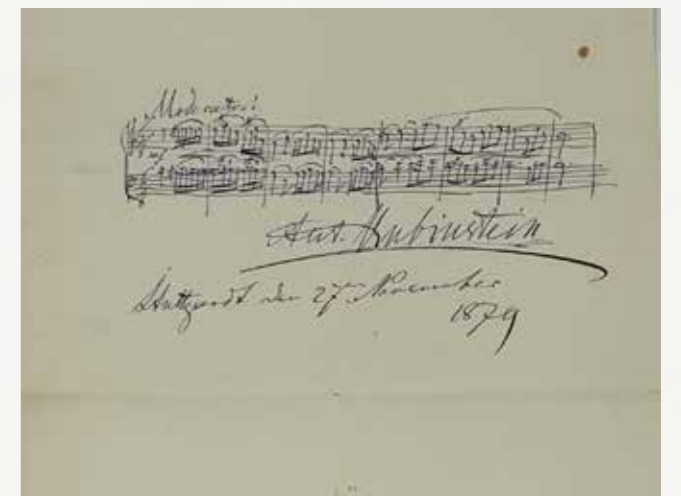 Moderato:
Ant. Rubinstein
Stuttgardt den 27ten November
1879